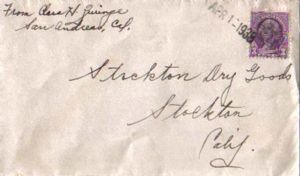 From Clara H.
San Andreas, Cal.
APR 15 193
Stockton Dry Goods
Stockton
Calif.